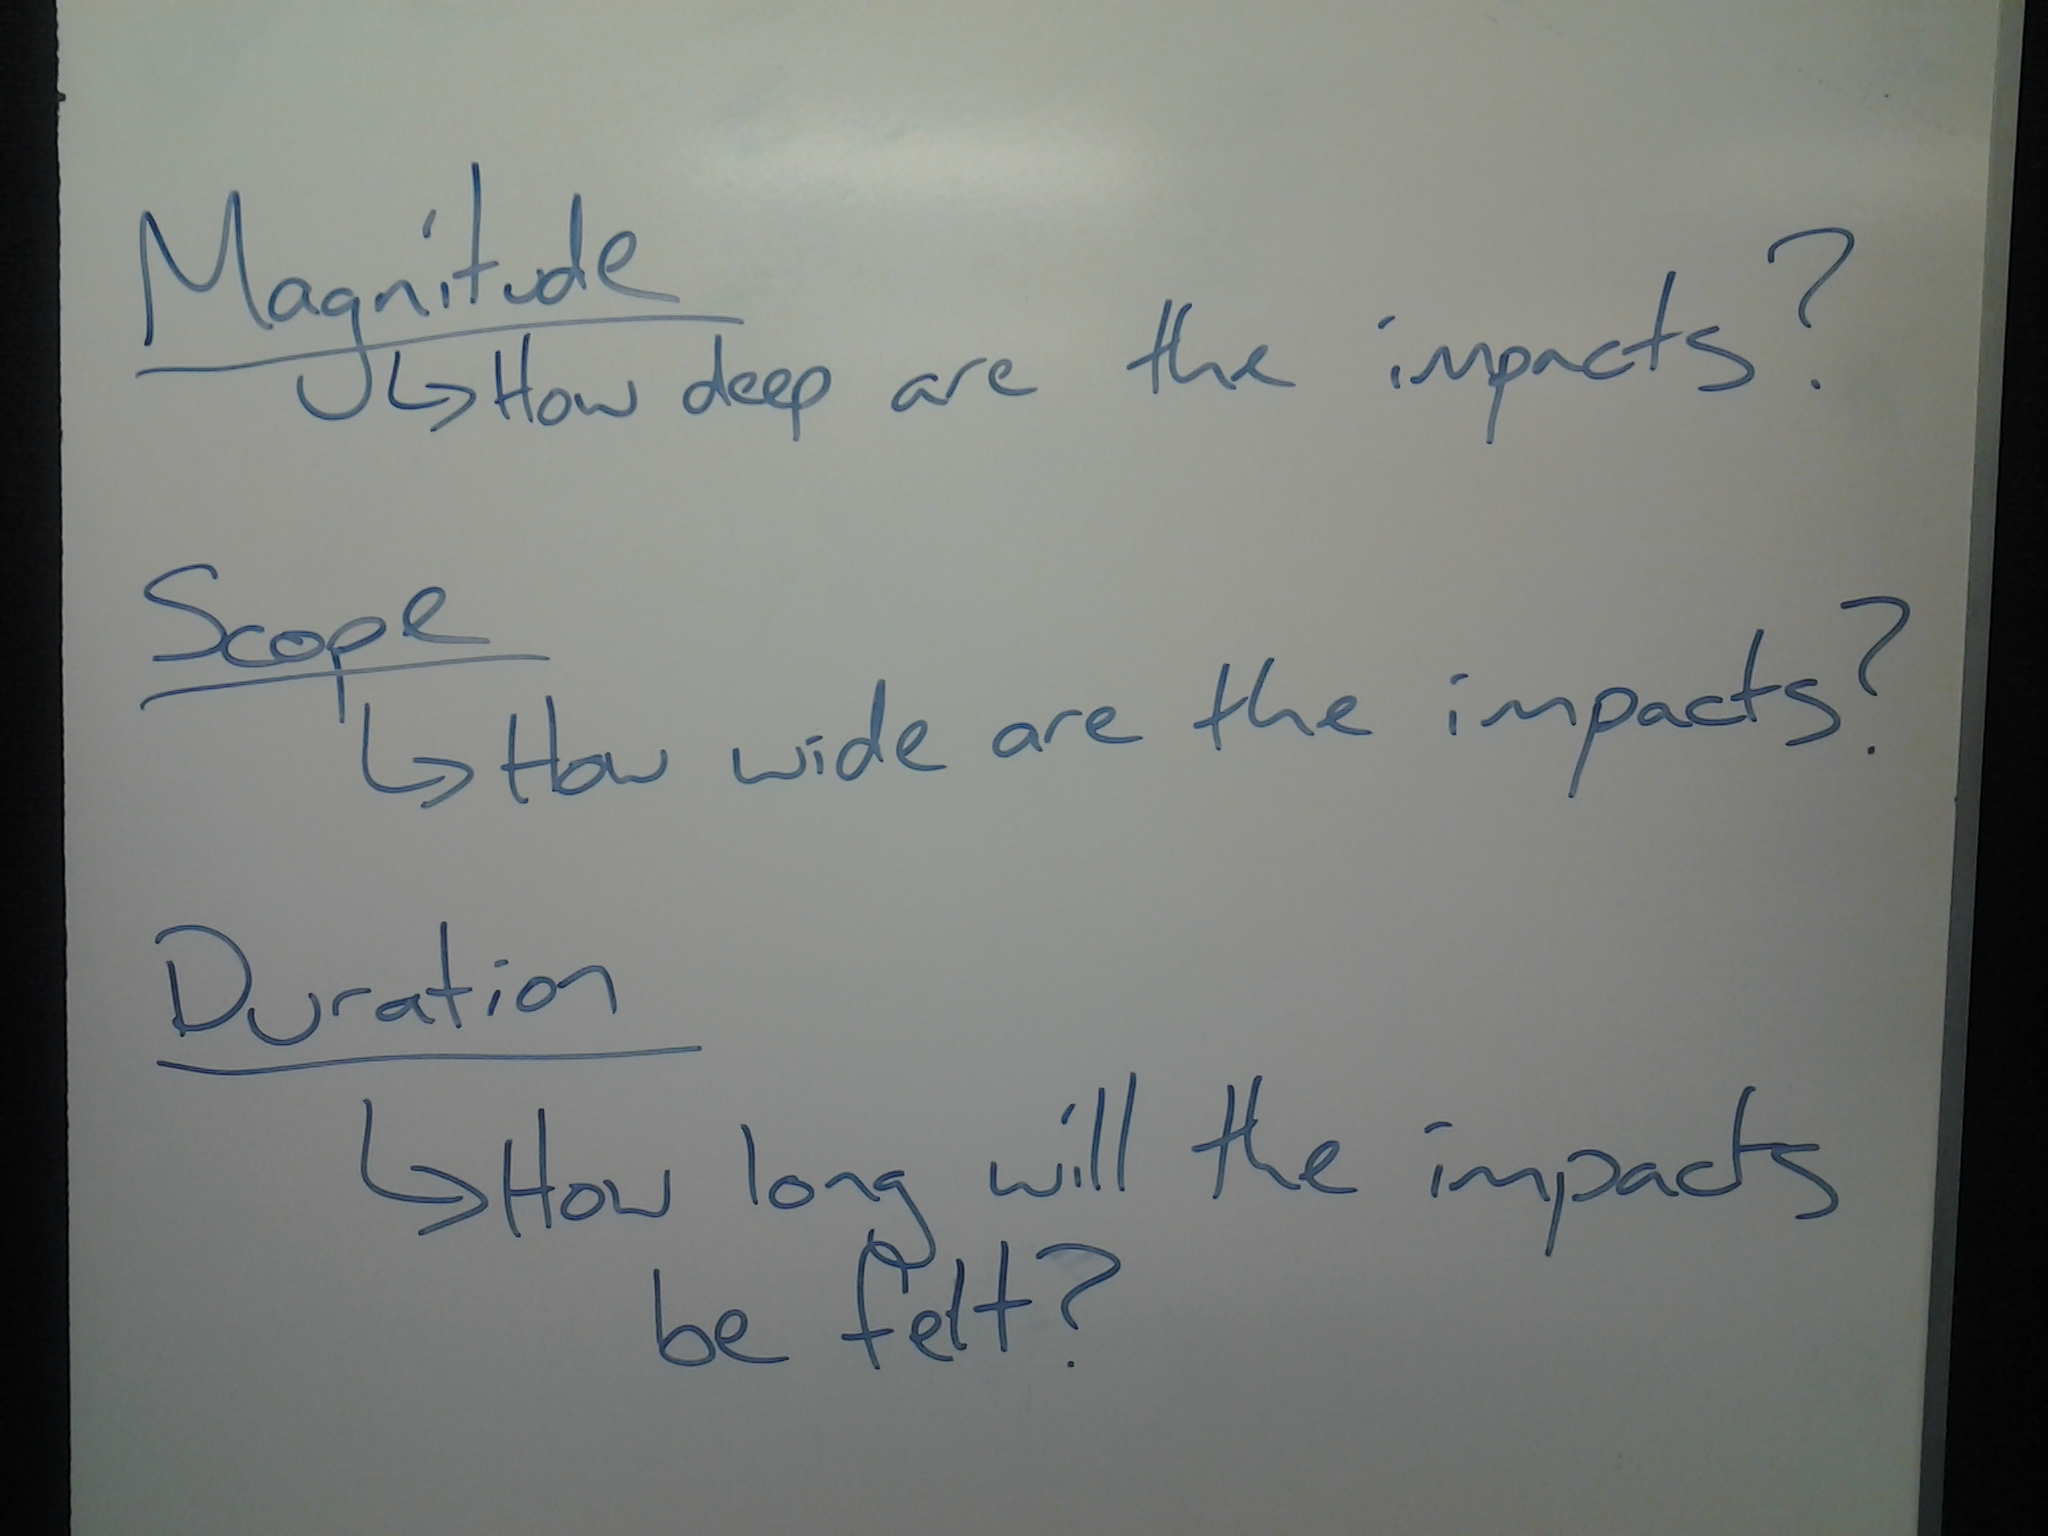 Magnitude
↳ How deep are the impacts?
Scope
↳ How wide are the impacts?
Duration
↳ How long will the impacts
be felt?